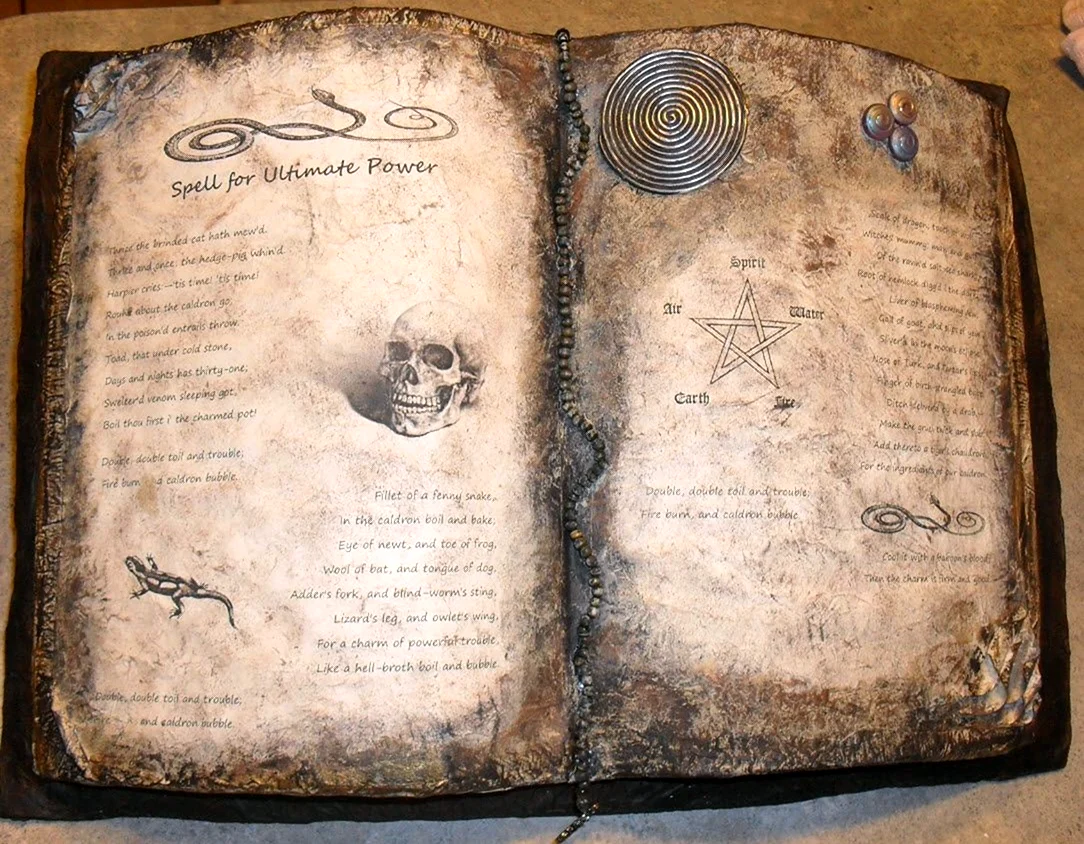 Spell for Ultimate Power
Thrice the brinded cat hath mew'd.
Thrice and once, the hedge-pig whin'd.
Harpier cries:—'tis time! 'tis time!
Round about the caldron go;
In the poison'd entrails throw.
Toad, that under cold stone,
Days and nights has thirty-one;
Swelter'd venom sleeping got,
Boil thou first i' the charmed pot!
Double, double toil and trouble;
Fire burn a caldron bubble.
Fillet of a fenny snake,
In the caldron boil and bake;
Eye of newt, and toe of frog,
Wool of bat, and tongue of dog,
Adder's fork, and blind-worm's sting,
Lizard's leg, and owlet's wing,
For a charm of powerful trouble,
Like a hell-broth boil and bubble.
Double, double toil and trouble;
and caldron bubble.
Spirit
Air
Water
Earth
Fire
Double, double toil and trouble;
Fire burn, and caldron bubble
Scale of dragon, tooth
Witches' mummy, maw and
Of the ravin'd salt-sea shark,
Root of hemlock digg'd i the
Liver of blaspheming
Gall of goat, and slips of yew
Sliver'd in the moon's eclipse,
Nose of Turk, and Tartar's
Finger of birth-strangled
Ditch-deliver'd by a drab,
Make the gruel thick and
Add thereto a tiger's chaudron,
For the ingredients of our caldron.
Cool it with a baboon's blood,
Then the charm is firm and good.